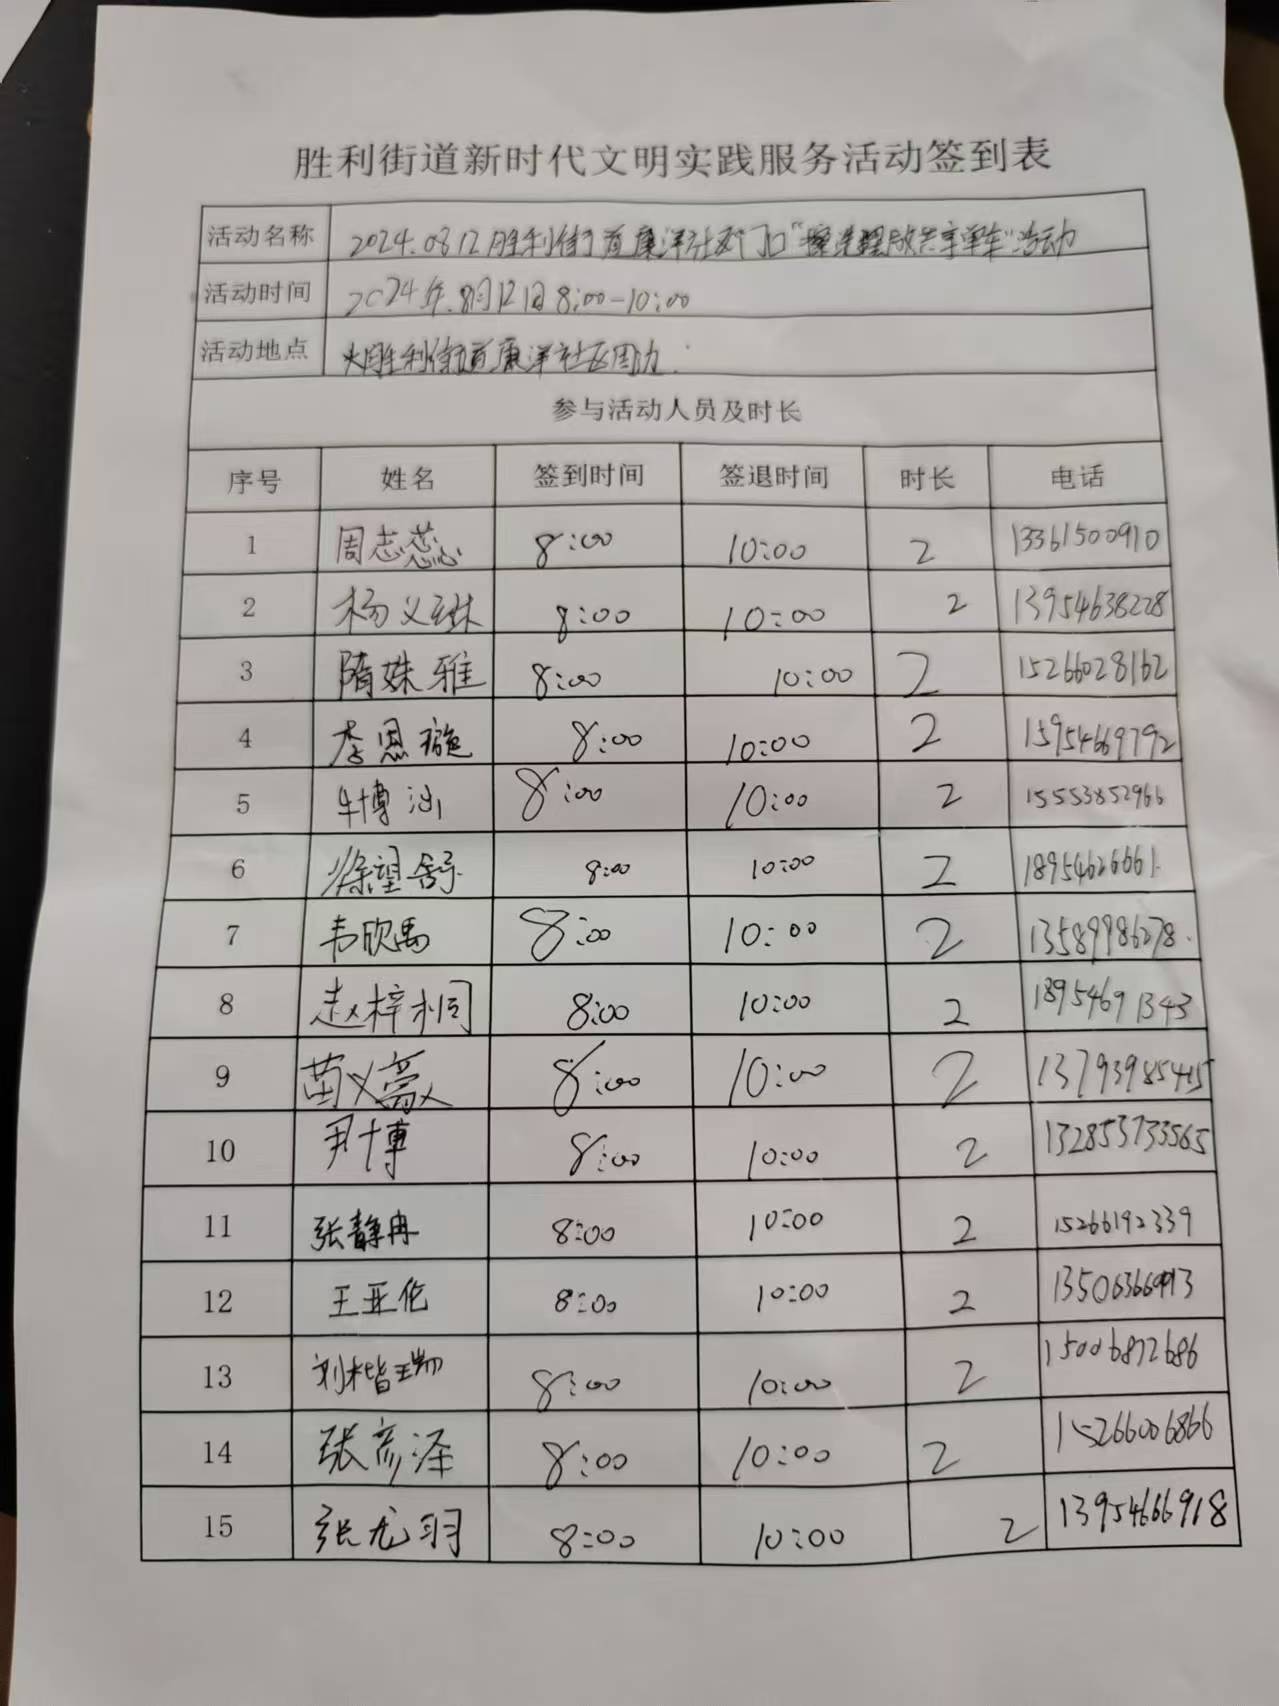 胜利街道新时代文明实践服务活动签到表
活动名称 2024.0812胜利街道康洋社区门口“擦洗摆放共享单车”活动
活动时间 2024年.8月12日8:00-10:00
活动地点 胜利街道康洋社区周边
参与活动人员及时长
序号 姓名 签到时间 签退时间 时长 电话
1 周志蕊 8:00 10:00 2 13361500910
2 杨义琳 8:00 10:00 2 13954638228
3 隋姝雅 8:00 10:00 2 15266028162
4 李恩璇 8:00 10:00 2 15954669792
5 牛博 8:00 10:00 2 15553852966
6 徐望舒 8:00 10:00 2 18954626661
7 韦欣禹 8:00 10:00 2 13589986278
8 赵梓桐 8:00 10:00 2 18954691343
9 苗义豪 8:00 10:00 2
10 尹博 8:00 10:00 2 132853733565
11 张静冉 8:00 10:00 2 15266192339
12 王亚伦 8:00 10:00 2
13 刘楷瑞 8:00 10:00 2 15006872686
14 张彦泽 8:00 10:00 2 15266006866
15 张尤羽 8:00 10:00 2 13954666918